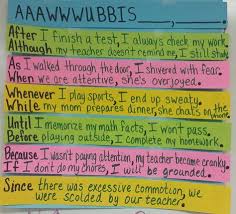 AAAWWWUBBIS ______, ______.
After I finish a test, I always check my work.
Although my teacher doesn't remind me, I still study.
As I walked through the door, I shivered with fear.
When we are attentive, she's overjoyed.
Whenever I play sports, I end up sweaty.
While my mom prepares dinner, she chats on the phone.
Until I memorize my math facts, I won't pass.
Before playing outside, I complete my homework.
Because I wasn't paying attention, my teacher became cranky.
If I don't do my chores, I will be grounded.
Since there was excessive commotion, we
were scolded by our teacher.